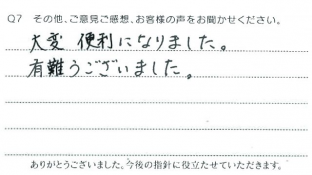 Q7 その他、ご意見ご感想、お客様の声をお聞かせください。
大変 便利になりました。
有難うございました。
ありがとうございました。今後の指針に役立たせていただきます。